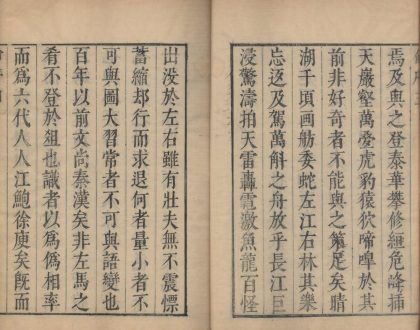 焉及與之登泰華攀修絙危降插
天巖壑萬疊虎豹猿狖啼嘷於其
前非好奇者不能與之策足矣睛
湖千頃畫舫委蛇左江右林其樂
忘返及駕萬斛之舟放乎長江巨
浸驚濤拍天雷轟霓激魚龍百怪
出没於左右雖有壯夫無不震慓
蓄縮却行而求退何者量小者不
可與圖大習常者不可與語變也
百年以前文尚秦漢矣非左馬之
肴不登於俎也識者以爲僞相率
而爲六代人人江鮑徐庾矣旣而